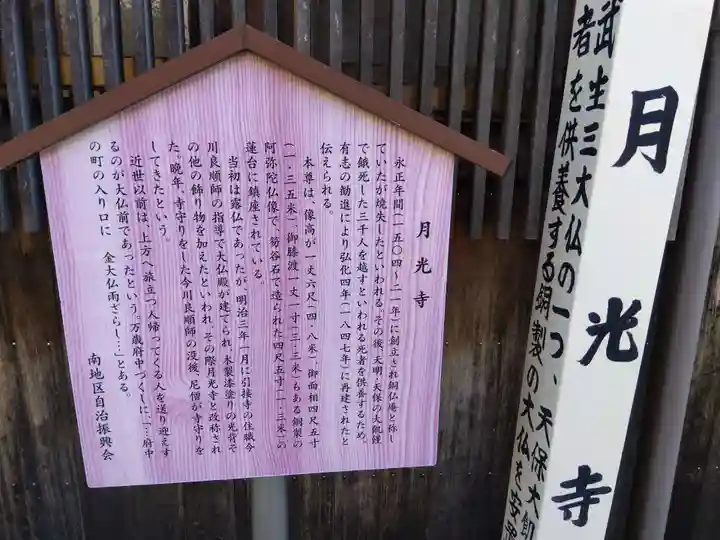 月光寺
永正年間(一五〇四〜二一年)に創立され銅仏庵と称し
ていたが焼失したといわれる。その後、天明・天保の大飢饉
で餓死した三千人を越すといわれる死者を供養するため、
有志の勧進により弘化四年(一八四七年)に再建されたと
伝えられる。
本尊は、像高が一丈六尺(四・八米)、御面相四尺五寸
(一・三五米)、御膝渡一丈一寸(三・三米)もある銅製の
阿弥陀仏像で、笏谷石で造られた四尺五寸(一・三米)の
蓮台に鎮座されている。
当初は露仏であったが、明治三年一月に引接寺の住職今
川良順師の指導で大仏殿が建てられ、木製漆塗りの光背そ
の他の飾り物を加えたといわれ、その際月光寺と改称され
た。晩年、寺守りをした今川良順師の没後、尼僧が寺守りを
してきたという。
近世以前は、上方へ旅立つ人帰ってくる人を送り迎えす
るのが大仏前であったという。万歳府中づくしに、「…府中
の町の入り口に 金大仏雨ざらし…」とある。
南地区自治振興会
月光寺
武生三大仏の一つ、天保大飢
者を供養する銅製の大仏を安置